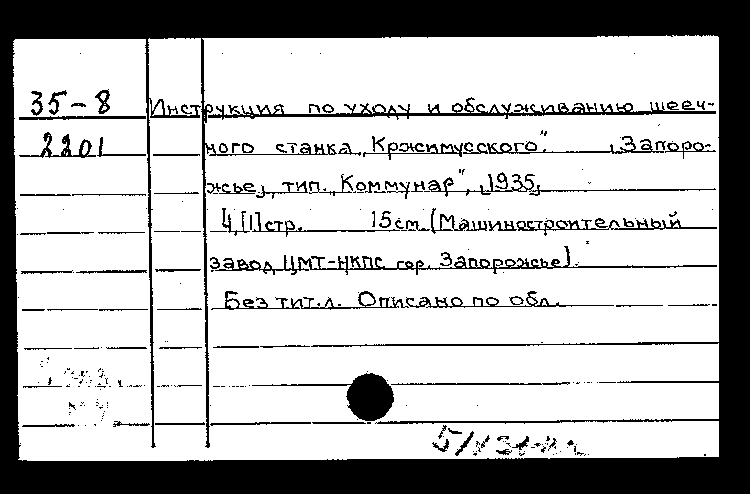 35-8 Инструкция по уходу и обслуживанию шееч-
2201 ного станка „Кржимусского". [Запоро-
жье], тип. „Коммунар", [1935]
4,[1]стр. 15см. (Машиностроительный
завод ЦМТ-НКПС гор. Запорожье).
Без тит.л. Описано по обл.